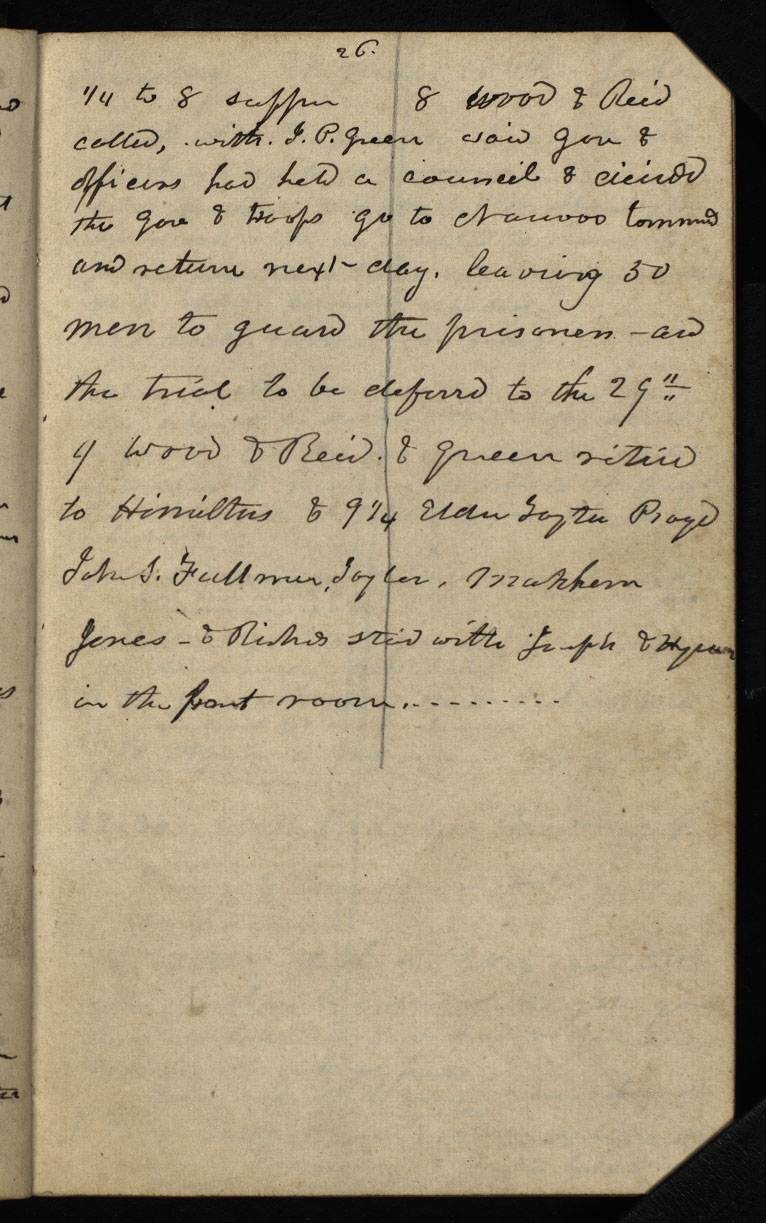 26.
1/4 to 8 supper 8 Wood & Reid
called, with. J. P. Green said Gov &
officers had held a council & decided
the Gov & troops go to Nauvoo tommrd
and return next day. leaving 50
men to guard the prisoners - and
the trial to be deferrd to the 29"
9 Wood & Reid. & Green retird
to Hamiltons & 9 1/4 Elder Taylor Prayd
John S. Fullmer, Taylor, Markham
Jones - & Richds staid with Joseph & Hyrum
in the front room..........